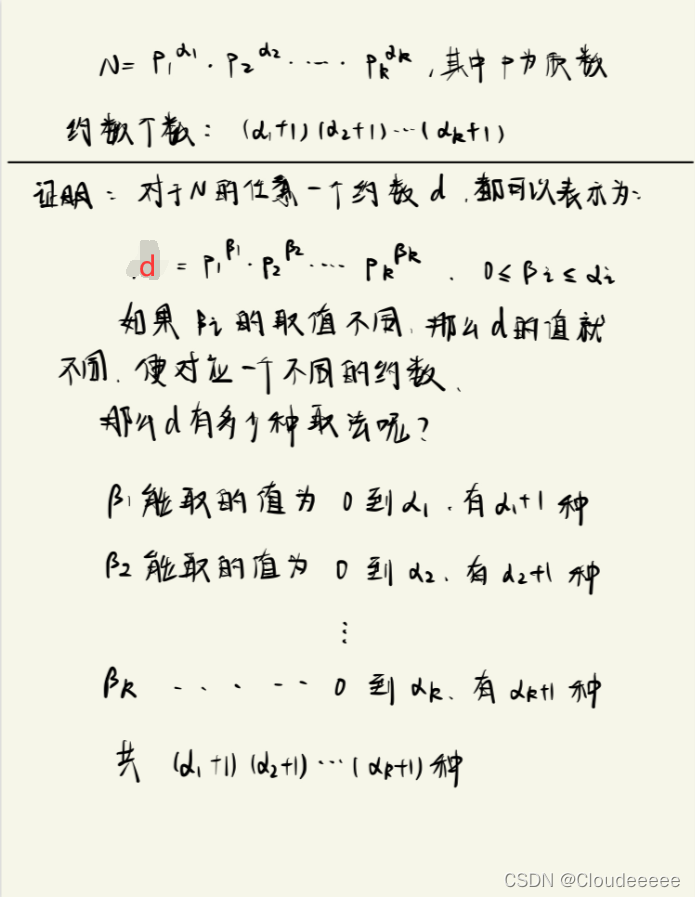 N= P₁^α₁ · P₂^α₂ · ···· · Pₖ^αₖ ,其中P为质数
约数个数: (α₁+1)(α₂+1)···(αₖ+1)
证明: 对于N的任意一个约数d,都可以表示为:
d = P₁^β₁ · P₂^β₂ ···· Pₖ^βₖ . 0≤βi≤αi
如果βi的取值不同,那么d的值就
不同、便对应一个不同的约数、
那么d有多少种取法呢?
β₁能取的值为 0到α₁、有α₁+1种
β₂能取的值为 0到α₂、有α₂+1种
⋮
βₖ ····· 0到αₖ、有αₖ+1种
共 (α₁+1)(α₂+1)···(αₖ+1)种
CSDN @Cloudeeeee